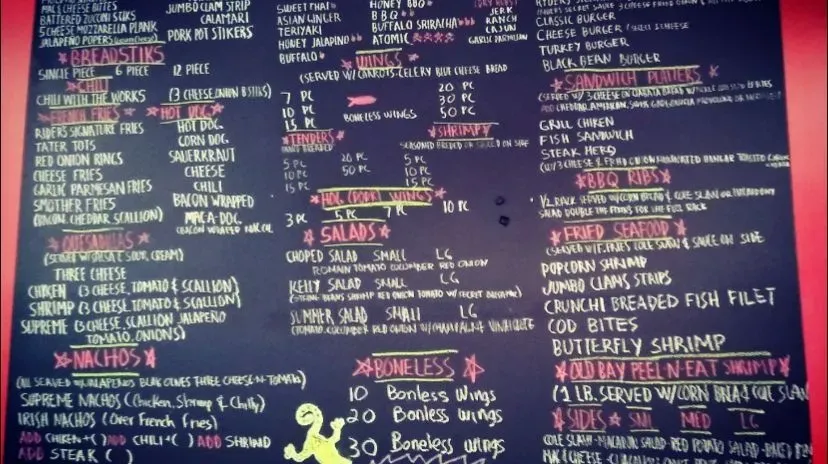 MAC CHEESE BITES
BATTERED ZUCCINI STIKS
5 CHEESE MOZZARELLA PLANK
JALAPEÑO POPERS
JUMBO CLAM STRIP
CALAMARI
PORK POT STIKERS
BREADSTIKS
SINGLE PIECE 6 PIECE 12 PIECE
CHILI
CHILI WITH THE WORKS (3 CHEESE, ONION & STIKS)
FRENCH FRIES
RIDERS SIGNATURE FRIES
TATER TOTS
RED ONION RINGS
CHEESE FRIES
GARLIC PARMESAN FRIES
SMOTHER FRIES
(BACON, CHEDDAR, SCALLION)
HOT DOG
HOT DOG
CORN DOG
SAUERKRAUT
CHEESE
CHILI
BACON WRAPPED
MAC-A-DOG
QUESADILLAS
(SERVED W/ SALSA & SOUR CREAM)
THREE CHEESE
CHIKEN (3 CHEESE, TOMATO & SCALLION)
SHRIMP (3 CHEESE, TOMATO & SCALLION)
SUPREME (3 CHEESE, SCALLION, JALAPEÑO
TOMATO, ONIONS)
NACHOS
(ALL SERVED W/ JALAPENOS BLAK OLIVES THREE CHEESE-N-TOMATO)
SUPREME NACHOS (Chicken, Shrimp & Chilly)
IRISH NACHOS (Over French Fries)
ADD CHIKEN + ( ) ADD CHILI + ( ) ADD SHRIMP
ADD STEAK ( )
SWEET THAI
ASIAN GINGER
TERIYAKI
HONEY JALAPINO
BUFFALO
HONEY BBQ
BBQ
BUFFALO SRIRACHA
ATOMIC
JERK
RANCH
CAJUN
GARLIC PARMESAN
WINGS
(SERVED W/ CARROTS-CELERY BLUE CHEESE BREAD
7 PC
10 PC
15 PC
BONELESS WINGS
20 PC
30 PC
50 PC
TENDERS
5 PC
10 PC
15 PC
20 PC
50 PC
SHRIMP
5 PC
10 PC
15 PC
HOG (PORK) WINGS
3 PC 5 PC 7 PC 10 PC
SALADS
CHOPED SALAD SMALL LG
ROMAIN TOMATO CUCUMBER RED ONION
KELLY SALAD SMALL LG
(STRING BEANS SHRIMP RED ONION TOMATO W/ SECRET
SUMMER SALAD SMALL LG
(TOMATO, CUCUMBER RED ONION W/
BONELESS
10 Bonless wings
20 Bonless wings
30 Boneless wings
CLASSIC BURGER
CHEESE BURGER
TURKEY BURGER
BLACK BEAN BURGER
SANDWICH PLATERS
GRILL CHIKEN
FISH SANDWICH
STEAK HERO
BBQ RIBS
1/2 RACK SERVED W/ CORN BREAD & COLE SLAW OR
SALAD DOUBLE THE FIXENS FOR THE FULL RACK
FRIED SEAFOOD
(SERVED W/ F. FRIES COLE SLAW & SAUCE ON SIDE
POPCORN SHRIMP
JUMBO CLAMS STRIPS
CRUNCHI BREADED FISH FILET
COD BITES
BUTTERFLY SHRIMP
OLD BAY PEEL-N-EAT SHRIMP
(1 LB. SERVED W/ CORN BREAD & COLE SLAW
SIDES SM MED LG
COLE SLAW - MACARONI SALAD - RED POTATO SALAD - BAKED
MAC & CHEESE -